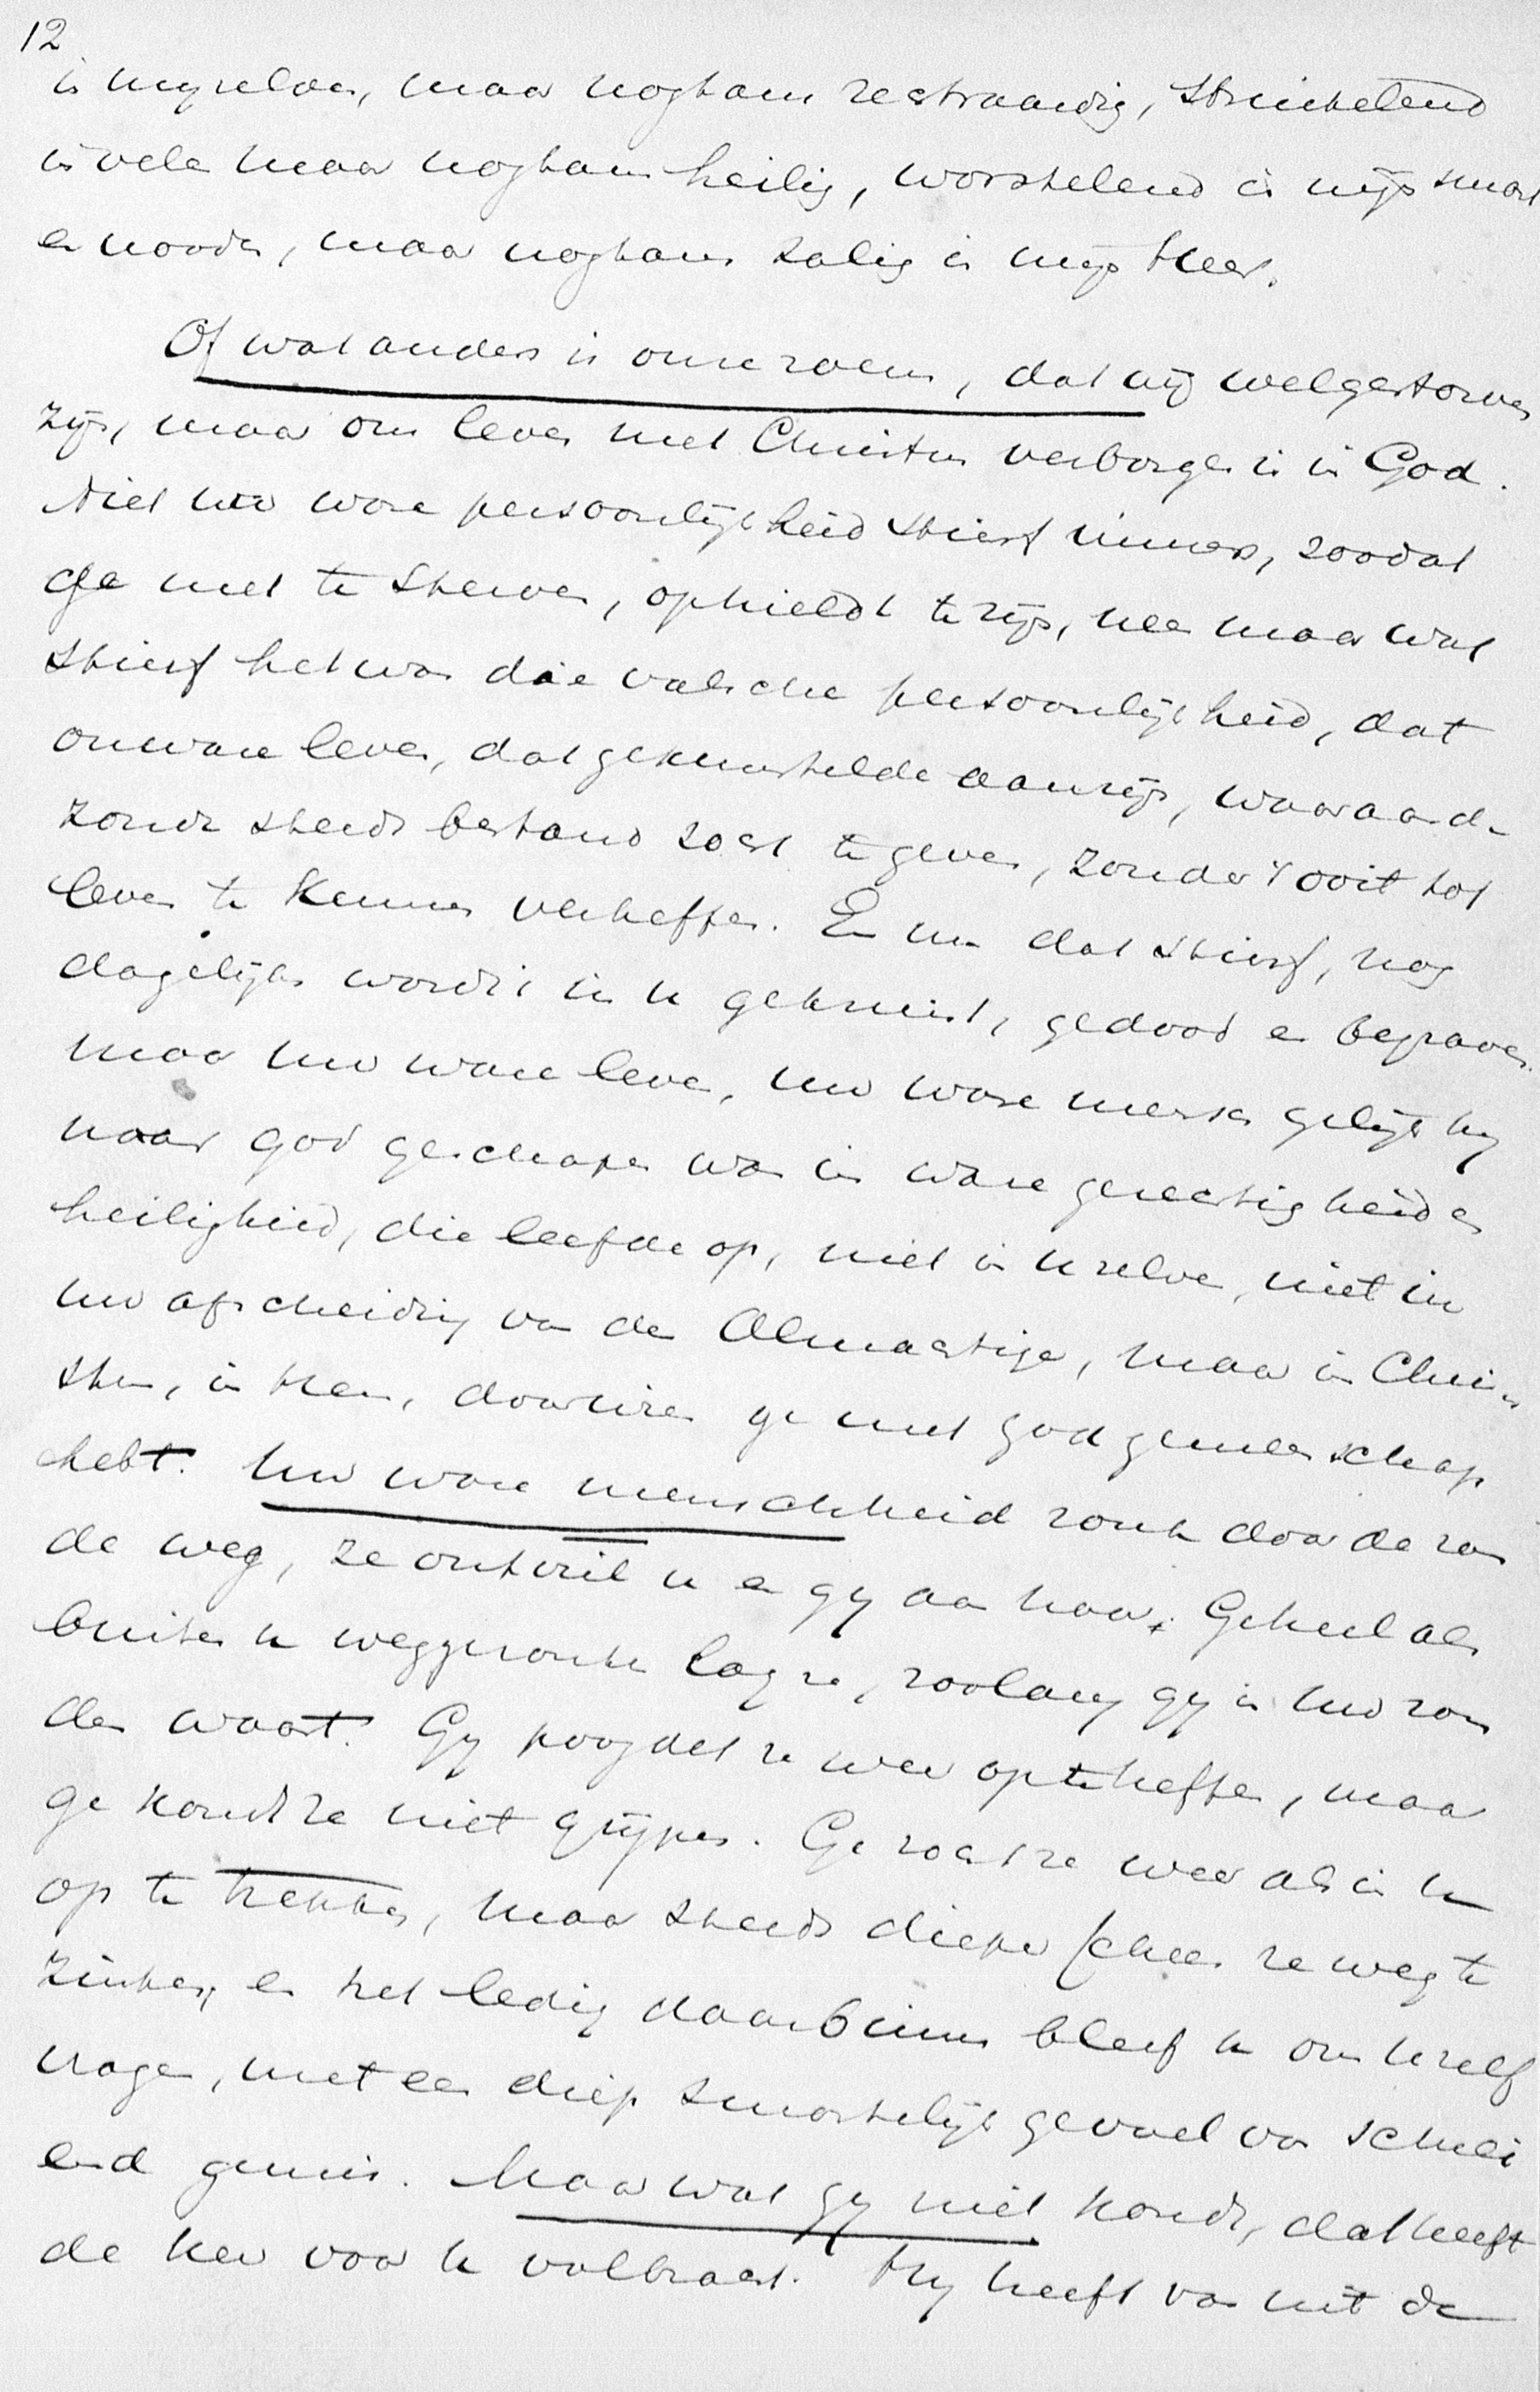 12
in mijzelven, maar nogtans rechtvaardig, struikelend
in velen maar nogtans heilig, worstelend in mijn smart
en nooden, maar nogtans zalig in mijn Heer.
Of wat anders is onze roem, dat wij welgestorven
zijn, maar ons leven met Christus verborgen is in God.
Niet uw ware persoonlijkheid stierf immers, zoodat
ge met te sterven, ophieldt te zijn, neen maar wat
stierf het was die valsche persoonlijkheid, dat
onware leven, dat gekunstelde aanzijn, waaraan de
zonde steeds bestand zocht te geven, zonder 't ooit tot
leven te kunnen verheffen. En nu dat stierf, nog
dagelijks wordt in u gekruist, gedood en begraven.
maar uw ware leven, uw ware mensch gelijk hij
naar God geschapen was in ware gerechtigheid en
heiligheid, die leefde op, niet in u zelven, niet in
uw afscheiding van den Almachtige, maar in Chris-
tus, in Hem, door wien ge met God gemeenschap
hebt. Uw ware menschheid zonk door de zon
de weg, ze ontviel u en gij aan haar. Geheel als
buiten u weggezonken lag ze, zoolang gij in uw zon
den waart. Gij poogdet ze weer op te heffen, maar
ge kondt ze niet grijpen. Ge zocht ze weer als in u
op te trekken, maar steeds dieper scheen ze weg te
zinken, en het ledig daarbinnen bleef u om uzelf
vragen, met een diep smartelijk gevoel van schrei
end gemis. Maar wat gij niet kondt, dat heeft
de Heer voor u volbracht. Hij heeft van uit de